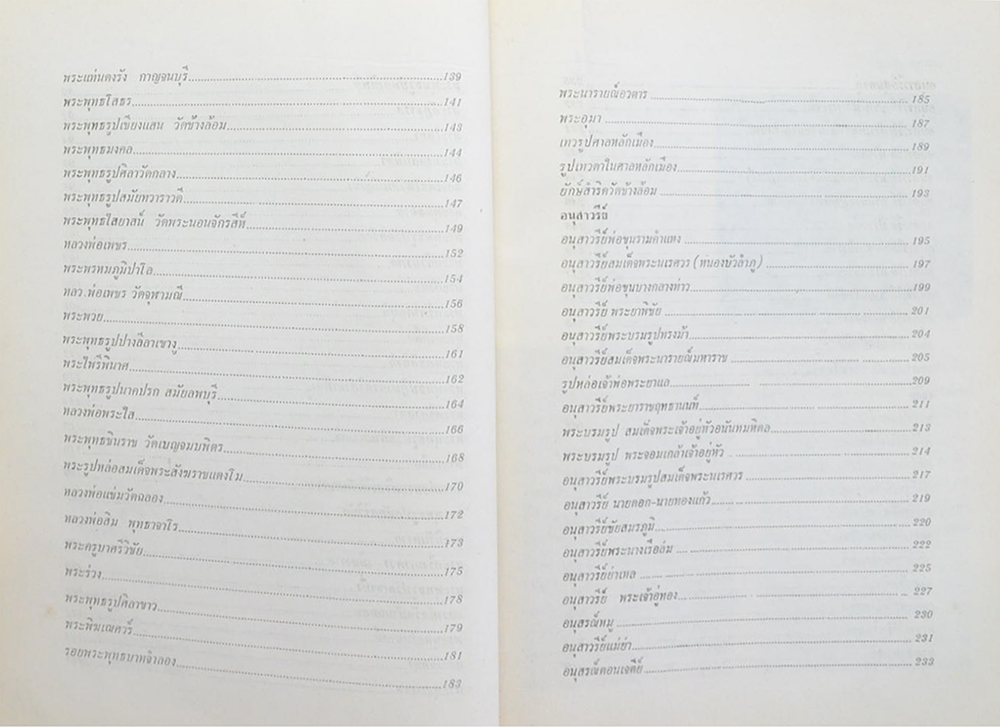 พระแท่นดงรัง กาญจนบุรี 139
พระพุทธโสธร 141
พระพุทธรูปเชียงแสน วัดช้างล้อม 143
พระพุทธมงคล 144
พระพุทธรูปศิลาวัดกลาง 146
พระพุทธรูปสมัยทวาราวดี 147
พระพุทธไสยาสน์ วัดพระนอนจักรสีห์ 149
หลวงพ่อเพชร 152
พระพรหมภูมิปาโล 154
หลว.พ่อเพชร วัดจุฬามณี 156
พระพวย 158
พระพุทธรูปปางลีลาเขางู 161
พระไพรีพินาศ 162
พระพุทธรูปนาคปรก สมัยลพบุรี 164
หลวงพ่อพระใส 166
พระพุทธชินราช วัดเบญจมบพิตร 168
พระรูปหล่อสมเด็จพระสังฆราชแตงโม 170
หลวงพ่อแช่มวัดฉลอง 172
หลวงพ่อสิม พุทธาจาโร 173
พระครูบาศรีวิชัย 175
พระร่วง 178
พระพุทธรูปศิลาขาว 179
พระพิฆเณศวร์ 181
รอยพระพุทธบาทจำลอง 183
พระนารายณ์อวตาร 185
พระอุมา 187
เทวรูปศาลหลักเมือง 189
รูปเทวดาในศาลหลักเมือง 191
ยักษ์สำริดวัดช้างล้อม 193
อนุสาวรีย์
อนุสาวรีย์พ่อขุนรามกำแหง 195
อนุสาวรีย์สมเด็จพระนเรศวร (หนองบัวลำภู) 197
อนุสาวรีย์พ่อขุนบางกลางท่าว 199
อนุสาวรีย์ พระยาพิชัย 201
อนุสาวรีย์พระบรมรูปทรงม้า 204
อนุสาวรีย์สมเด็จพระนารายณ์มหาราช 205
รูปหล่อเจ้าพ่อพระยาแล 209
อนุสาวรีย์พระยาราชฤทธานนท์ 211
พระบรมรูป สมเด็จพระเจ้าอยู่หัวอนันทมหิดล 213
พระบรมรูป พระจอมเกล้าเจ้าอยู่หัว 214
อนุสาวรีย์พระบรมรูปสมเด็จพระนเรศวร 217
อนุสาวรีย์ นายดอก-นายทองแก้ว 219
อนุสาวรีย์ชัยสมรภูมิ 220
อนุสาวรีย์พระนางเรือล่ม 222
อนุสาวรีย์ย่าเหล 225
อนุสาวรีย์ พระเจ้าอู่ทอง 227
อนุสรณ์หมู 230
อนุสาวรีย์แม่ย่า 231
อนุสรณ์ดอนเจดีย์ 233